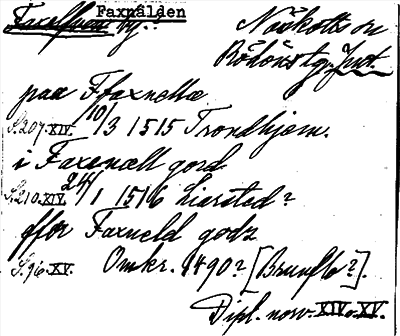 Faxnälden
Faxelfven by. Näskotts sn
Rödöns tg. Jmt.
paa Ffaxnellæ
S.207.XIV. 10/3 1515 Trondhjem.
i Faxenæll gord
S.210.XIV. 24/1 1516 Liersted?
ffor Faxneld godz
S.96.XV. Omkr. 1490? [Brunflo?].
Dipl. norv. XIV o. XV.